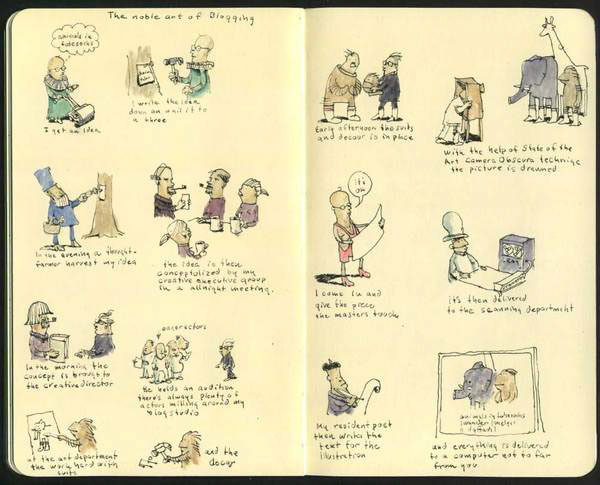 The noble art of Blogging
animals in
tubesocks
I get an idea
I write the idea
down an nail it to
a three
In the evening a thought-
farmor harvest my idea
the idea is then
conceptolized by my
creative executive group
in a allnight meeting.
In the morning the
concept is brought to
the creative director
He holds an audition
there's always plenty of
actors milling around my
blog studio
at the art department
the work hard with
suits
and the
decor
Early afternoon the suits
and decour is in place
With the help of State of the
Art Camera Obscura technique
the picture is drawned
it's
ok
I come in and
give the piece
the masters touch
it's then delivered
to the scanning department
My resident poet
then writes the
text for the
illustration
animals in tubesocks
and everything is delivered
to a computer not to far
from you